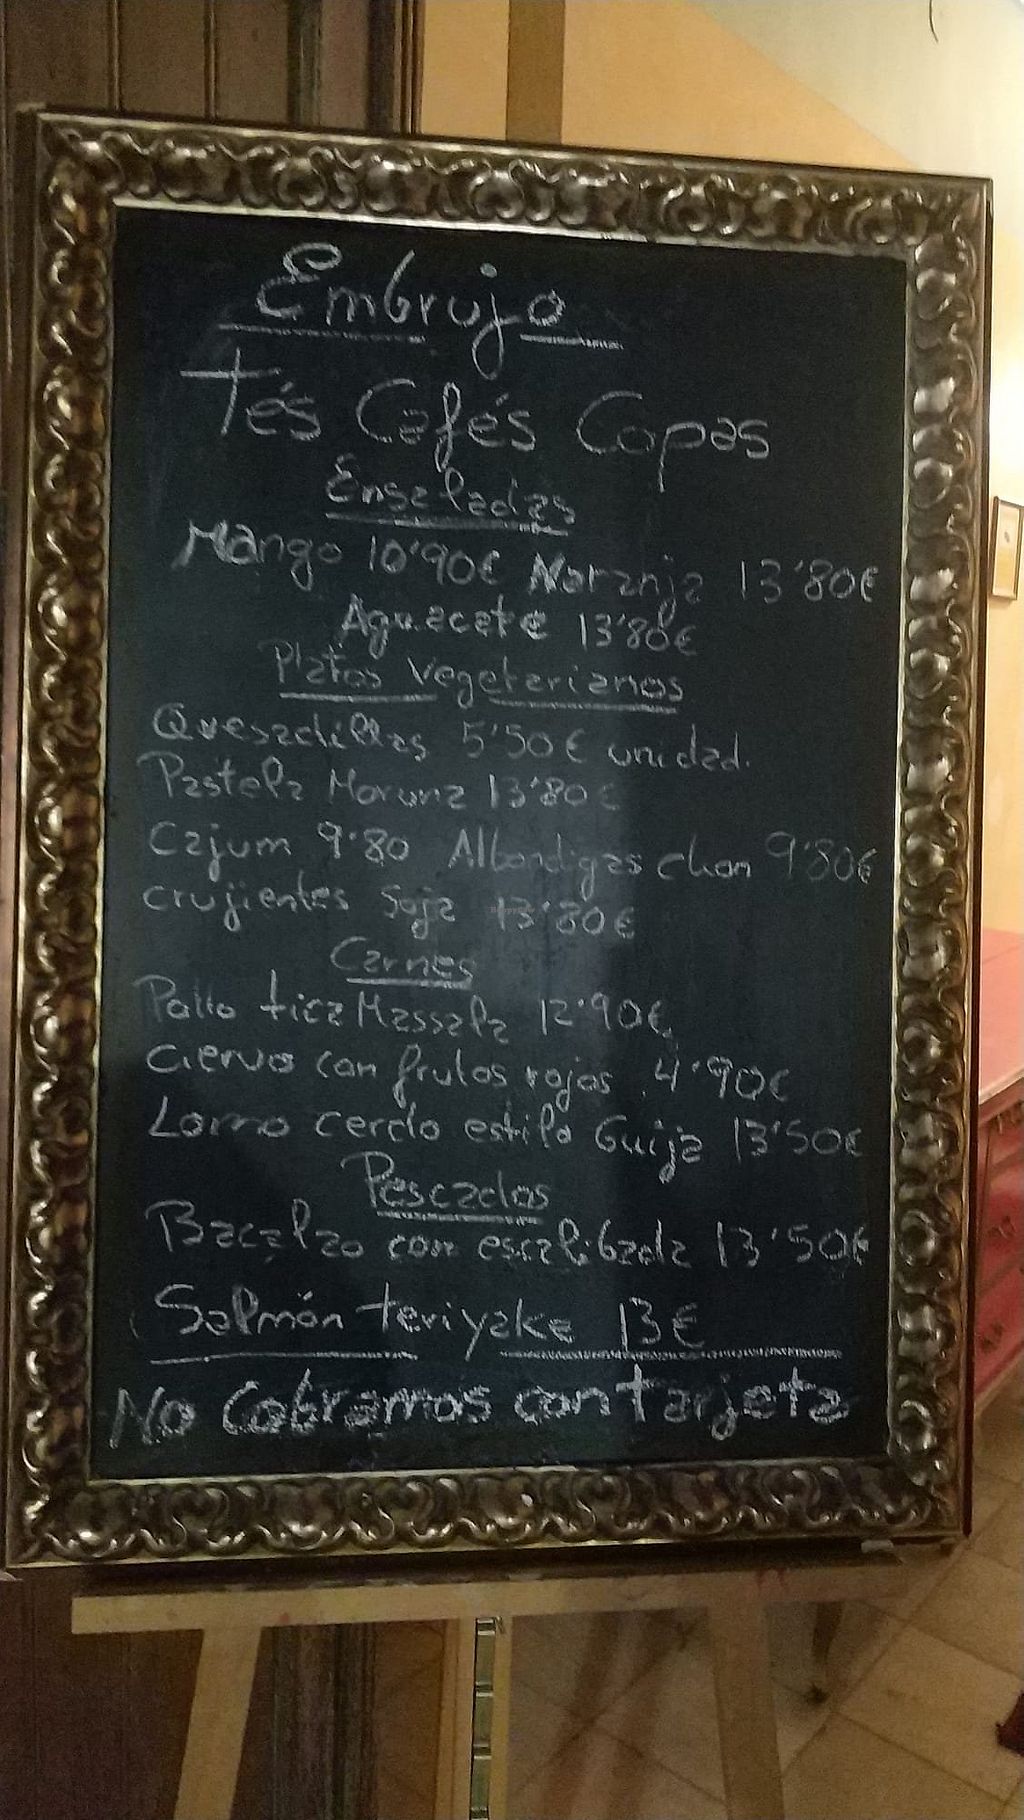 Embrujo
Tés Cafés Copas
Ensaladas
Mango 10'90€ Naranja 13'80€
Aguacate 13'80€
Platos Vegetarianos
Quesadillas 5'50€ unidad.
Pastela Moruna 13'80€
Cajum 9'80 Albondigas chon 9'80€
crujientes Soja 13'80€
Carnes
Pollo tica Massala 12'90€
Ciervo con frutos rojos 4'90€
Lomo cerdo estilo Guija 13'50€
Pescados
Bacalao con escalibada 13'50€
Salmón teriyake 13€
No Cobramos con tarjeta